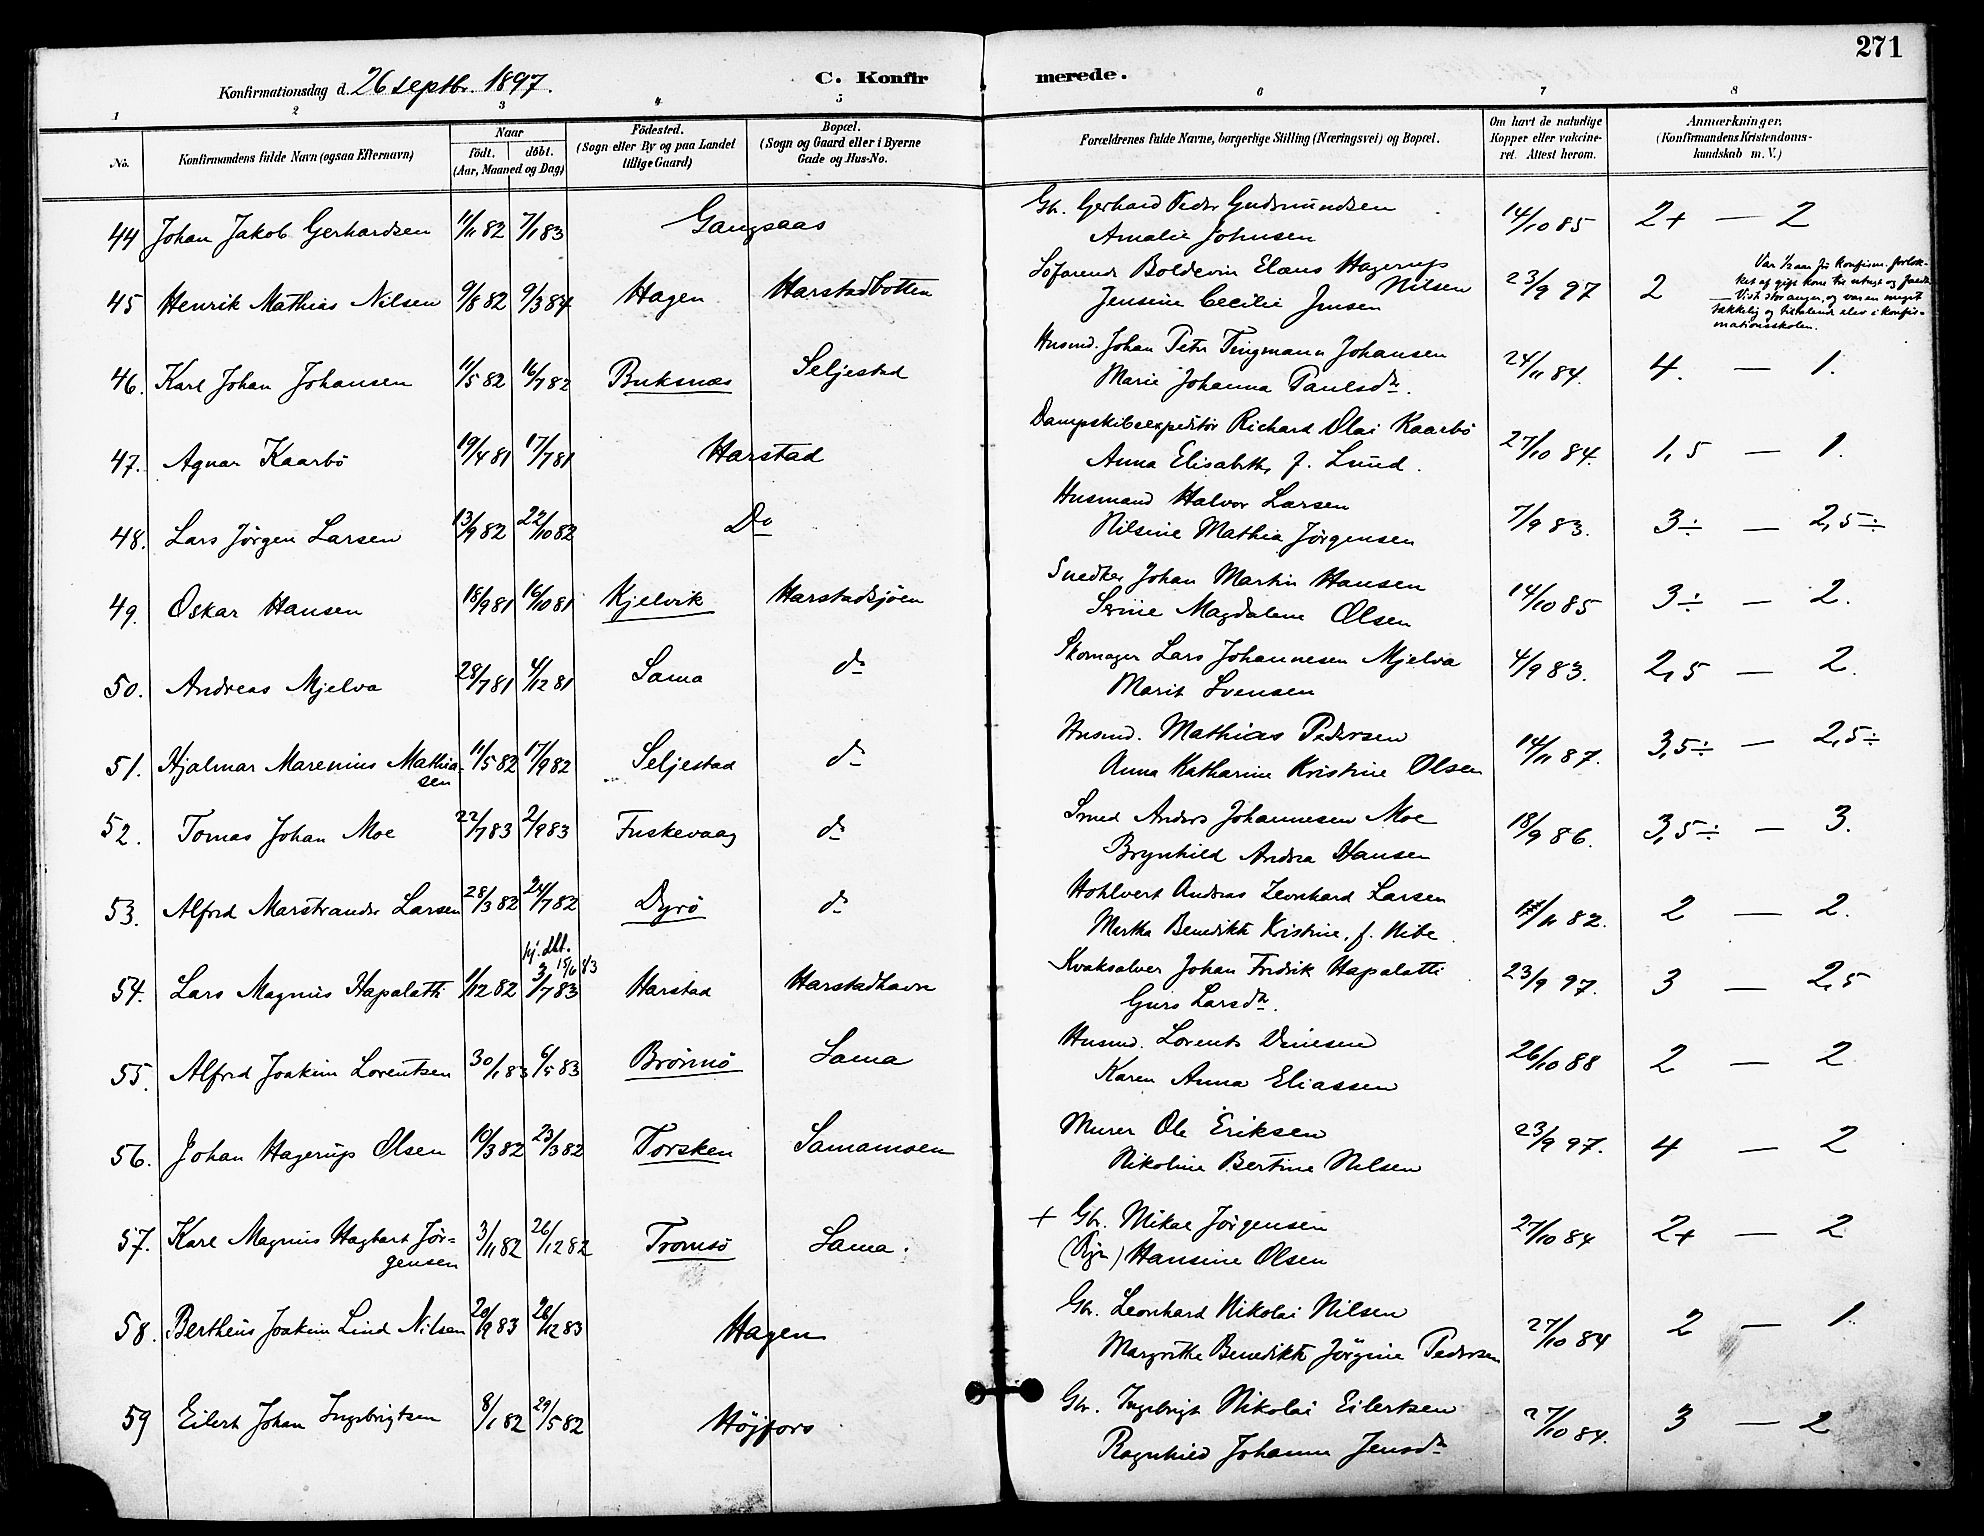 271
Konfirmationsdag d. 26 septbr. 1897.
C. Konfirmerede.
1 2 3 4 5 6 7 8
No.
Konfirmandens fulde Navn (ogsaa Efternavn)
Naar
födt. döbt.
(Aar, Maaned og Dag)
Födested.
(Sogn eller By og paa Landet
tillige Gaard)
Bopæl.
(Sogn og Gaard eller i Byerne
Gade og Hus-No.
Forældrenes fulde Navne, borgerlige Stilling (Næringsvei) og Bopæl.
Om havt de naturlige
Kopper eller vakcine-
ret. Attest herom.
Anmærkninger.
(Konfirmandens Kristendoms-
kundskab m. V.)
44 Johan Jakob Gerhardsen 11/11 82 7/1 83 Gangsaas Gbr. Gerhard Peder Gudmundsen 14/10 85 2+ — 2
Amalie Johnsen
45 Henrik Mathias Nilsen 9/8 82 9/3 84 Hagen Harstadbotten Söfarende Boldevin Elæus Hagerup 23/9 97 2
Nilsen
Jensine Cecilie Jensen
Var ½ aar för Konfirm. forlok-
ket af gift kone til utugt og
— Vist stor anger, og var en meget
tækkelig og tiltalende elev i konfir-
mationsskolen.
46. Karl Johan Johansen 11/5 82 16/7 82 Buksnæs Seljestad Husmd. Johan Peter Tingmann Johansen 24/11 84. 4. — 1.
Marie Johanna Paulsdr.
47. Agnar Kaarbö 19/4 81 17/7 81 Harstad Dampskibsexpeditör Richard Olai Kaarbö 27/10 84. 1,5 — 1.
Anna Elisabeth, f. Lund.
48. Lars Jörgen Larsen 13/9 82 22/10 82 Do Husmand Halvor Larsen 7/9 83. 3÷ — 2,5÷
Nilsine Mathia Jörgensen
49. Oskar Hansen 18/9 81 16/10 81 Kjelvik Harstadsjöen Snedker Johan Martin Hansen 14/10 85 3÷ — 2.
Serine Magdalene Olsen
50. Andreas Mjelva 28/7 81 4/12 81 Sama do Skomager Lars Johannesen Mjelva 4/9 83. 2,5 — 2.
Marit Svensen
51. Hjalmar Marenius Mathia- 11/5 82 17/9 82 Seljestad do Husmd. Mathias Pedersen 14/11 87. 3,5÷ — 2,5÷
sen
Anna Katharine Kristine Olsen
52. Tomas Johan Moe 22/7 83 2/9 83 Fuskevaag do Smed Anders Johannesen Moe 18/9 86. 3,5÷ — 3.
Brynhild Andrea Hansen
53. Alfred Marstrander Larsen 28/3 82 24/7 82 Dyrö do Andreas Leonhard Larsen /11 82. 2 — 2.
Martha Benedikte Kristine, f. Nibe.
hj. dbt.
15/6 83
54. Lars Magnus Hapalatti 1/12 82 3/7 83 Harstad Harstadhavn Kvaksalver Johan Fredrik Hapalatti 23/9 97. 3 — 2,5
Guro Larsdr.
55. Alfred Joakim Lorentsen 30/1 83 6/5 83 Brönnö Sama Husmd. Lorents Dinesen 26/10 88 2 — 2
Karen Anna Eliassen
56. Johan Hagerup Olsen 10/3 82 23/3 82 Torsken Samamoen Murer Ole Eriksen 23/9 97. 4 — 2
Nikoline Bertine Nilsen
57. Karl Magnus Hagbart Jör- 3/11 82 26/12 82 Tromsö Sama. + Gbr. Mikal Jörgensen 27/10 84 2+ — 2
gensen
Hansine Olsen
58. Bertheus Joakim Lind Nilsen 20/9 83 26/12 83 Hagen Gbr. Leonhard Nikolai Nilsen 27/10 84 2 — 1.
Margrethe Benedikte Jörgine Pedersen
59 Eilert Johan Ingebrigtsen 8/1 82 29/5 82 Höjfors Gbr. Ingebrigt Nikolai Eilertsen 27/10 84. 3 — 2
Ragnhild Johanna Jensdr.